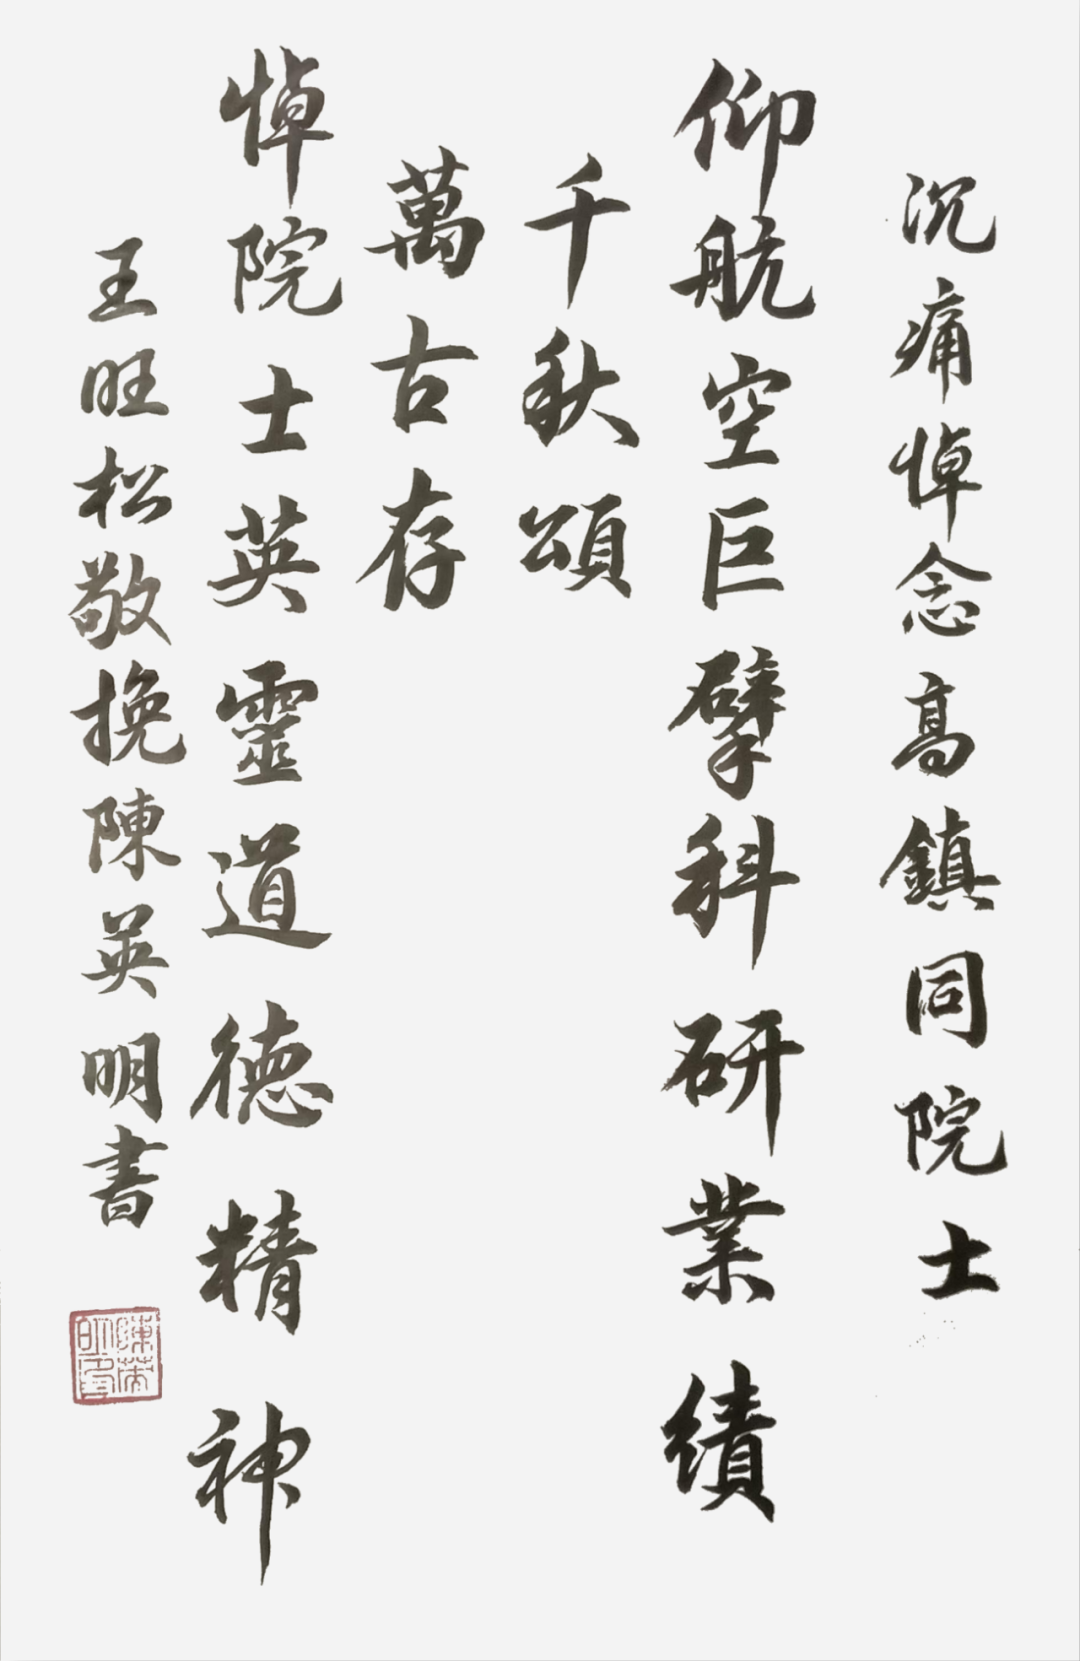 沉痛悼念高鎮同院士
仰航空巨擘科研業績
千秋頌
萬古存
悼院士英靈道德精神
王旺松敬挽陳英明書
陳英明印